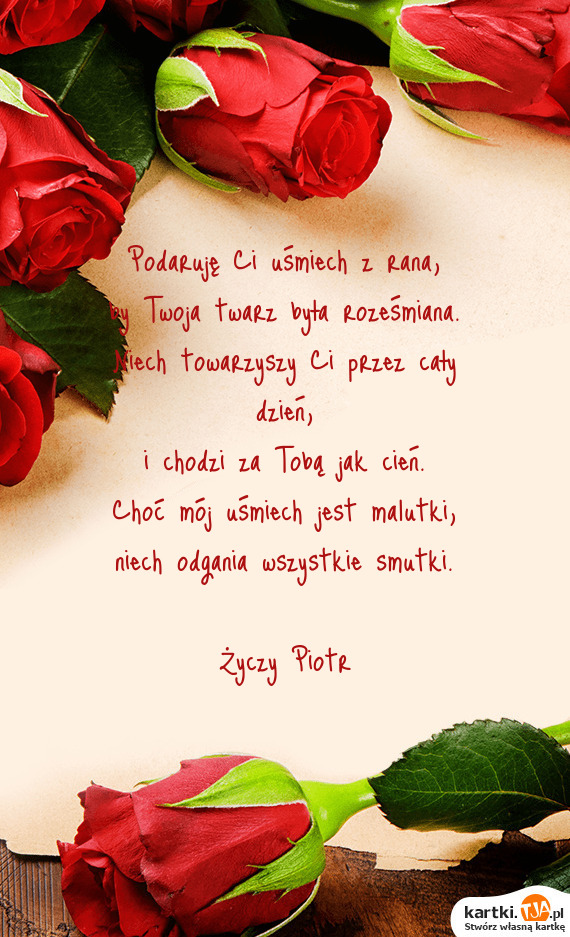 Podaruję Ci uśmiech z rana,
by Twoja twarz była roześmiana.
Niech towarzyszy Ci przez cały
dzień,
i chodzi za Tobą jak cień.
Choć mój uśmiech jest malutki,
niech odgania wszystkie smutki.
Życzy Piotr
kartki.TJA.pl
Stwórz własną kartkę